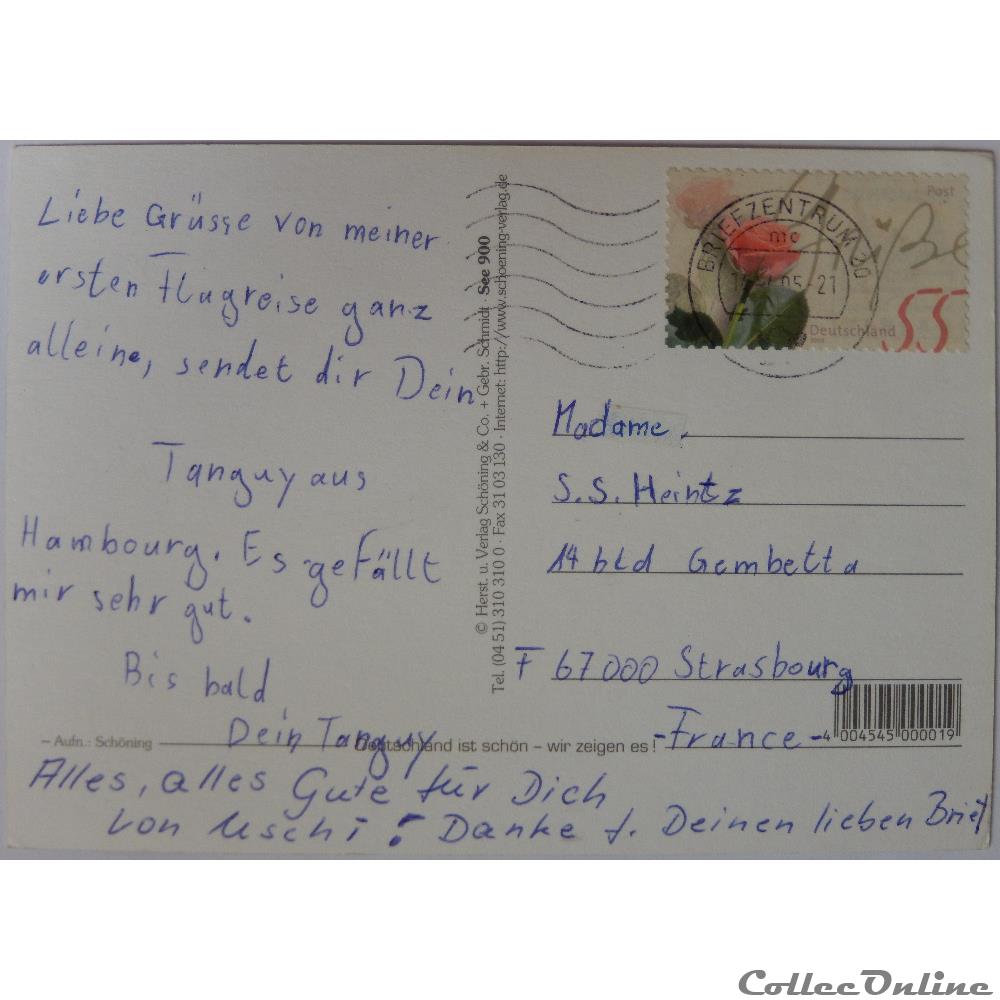 Liebe Grüsse von meiner
ersten Flugreise ganz
alleine, sendet dir Dein
Tanguy aus
Hambourg. Es gefällt
mir sehr gut.
Bis bald
Dein Tanguy
Alles, alles Gute für Dich
von Uschi! Danke f. Deinen lieben Brief
– Aufn.: Schöning
Deutschland ist schön – wir zeigen es!
© Herst. u. Verlag Schöning & Co. + Gebr. Schmidt · See 900
Tel. (04 51) 310 310 0 · Fax 31 03 130 · Internet: http://www.schoening-verlag.de
Post
Grüße
Deutschland
55
BRIEFZENTRUM 20
05-21
Madame.
S.S. Heintz
14 bld Gembetta
F 67000 Strasbourg
-France-
4 004545 000019
CollecOnline